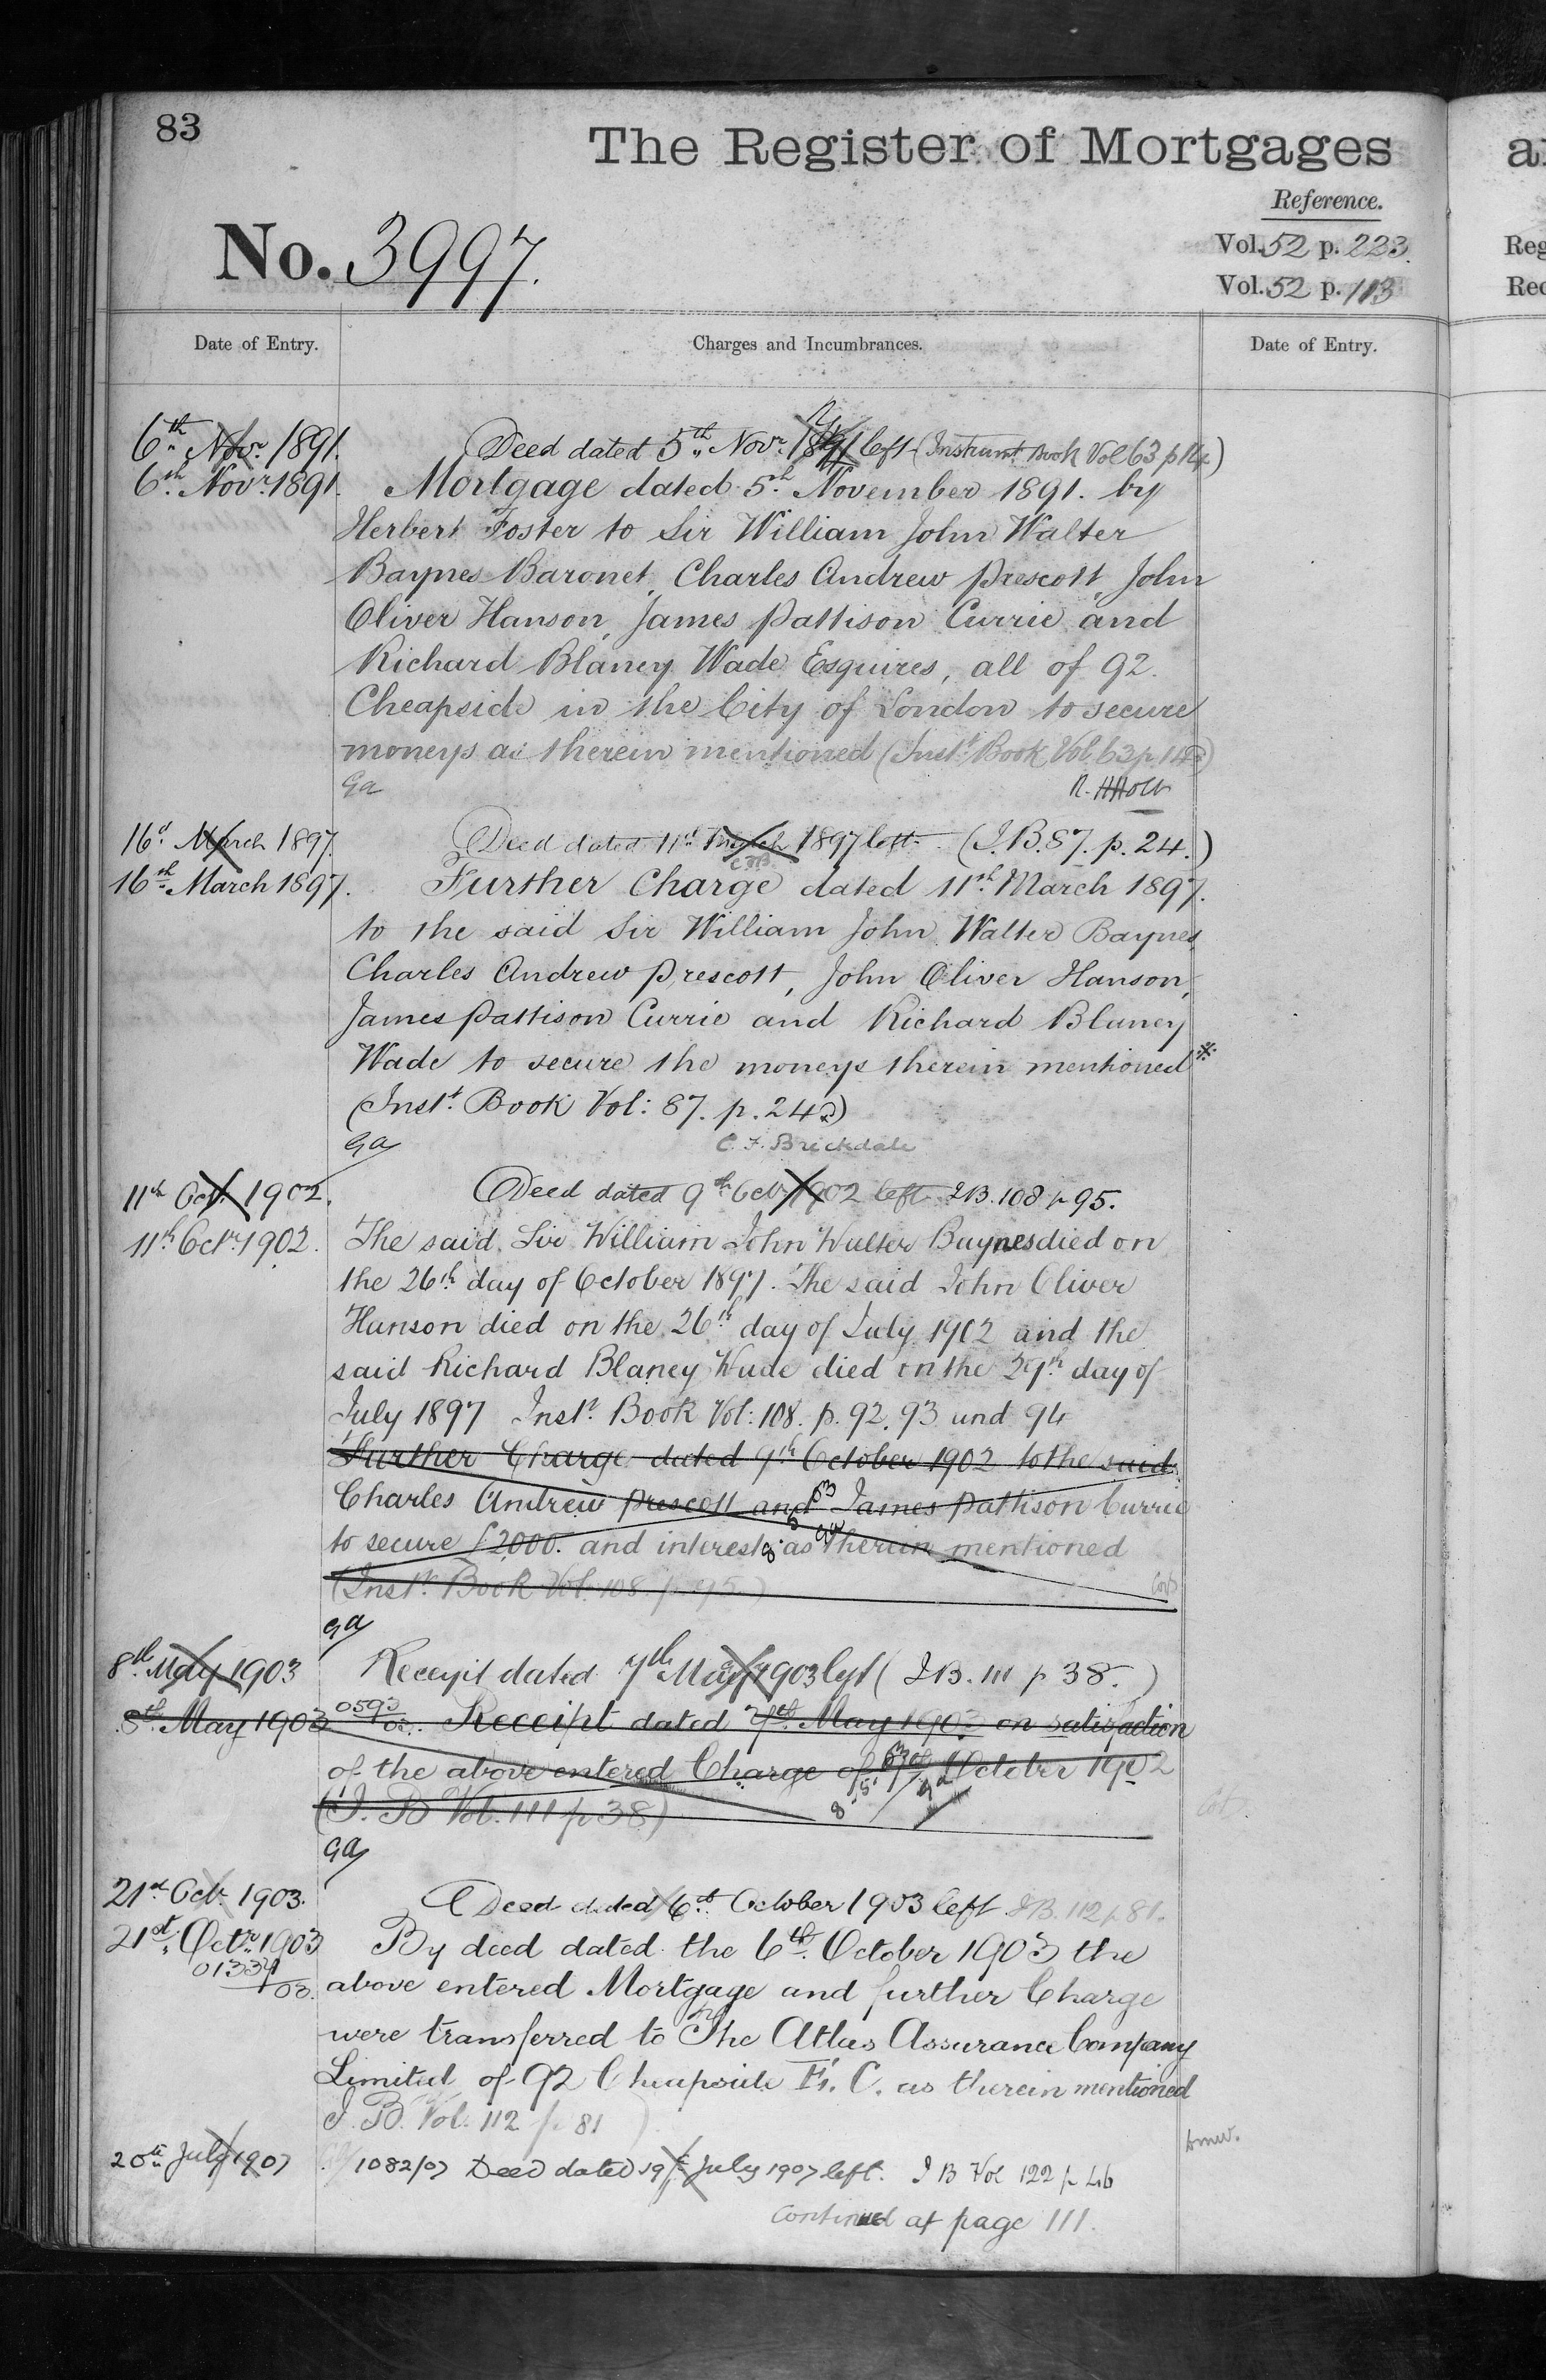 83
The Register of Mortgages
Reference.
No. 3997.
Vol. 52 p. 223.
Vol. 52 p. 113
Date of Entry.
Charges and Incumbrances.
Date of Entry.
6th Novr. 1891. Deed dated 5th Novr. 1891 left (Instrumt. Book Vol 63 p 14)
6th Novr. 1891. Mortgage dated 5th November 1891. by
Herbert Foster to Sir William John Walter
Baynes Baronet, Charles Andrew Prescott, John
Oliver Hanson, James Pattison Currie and
Richard Blaney Wade Esquires, all of 92.
Cheapside in the City of London to secure
moneys as therein mentioned (Inst. Book Vol. 63 p. 14)
ga
16th March 1897. Deed dated 11th March 1897 left. (I.B. 87. p. 24.)
16th March 1897. Further Charge dated 11th March 1897.
to the said Sir William John Walter Baynes
Charles Andrew Prescott, John Oliver Hanson,
James Pattison Currie and Richard Blaney
Wade to secure the moneys therein mentioned
(Inst. Book Vol: 87. p. 24)
ga
C. F. Brickdale
11th Oct. 1902. Deed dated 9th Oct. 1902 left I.B. 108 p 95.
11th Octr. 1902. The said Sir William John Walter Baynes died on
the 26th day of October 1897. The said John Oliver
Hanson died on the 26th day of July 1902 and the
said Richard Blaney Wade died on the 29th day of
July 1897 Inst. Book Vol: 108. p. 92, 93 and 94
Further Charge dated 9th October 1902 to the said
Charles Andrew Prescott and James Pattison Currie
to secure £2000. and interest as therein mentioned
(Inst. Book Vol. 108 p. 95)
ga
8th May 1903 Receipt dated 7th May 1903 left (I.B. 111 p 38.)
8th May 1903 0593/03. Receipt dated 7th May 1903 on satisfaction
of the above entered Charge of 9th October 1902
(I. B Vol. 111 p 38)
ga
21st Oct. 1903. Deed dated 6th October 1903 left I.B. 112 p 81.
21st Octr. 1903 By deed dated the 6th October 1903 the
above entered Mortgage and further Charge
were transferred to The Atlas Assurance Company
Limited of 92 Cheapside E. C. as therein mentioned
I. B. Vol. 112 p. 81)
20th July 1907 1082/07 Deed dated 19th July 1907 left. I B Vol 122 p 46
Continued at page 111.